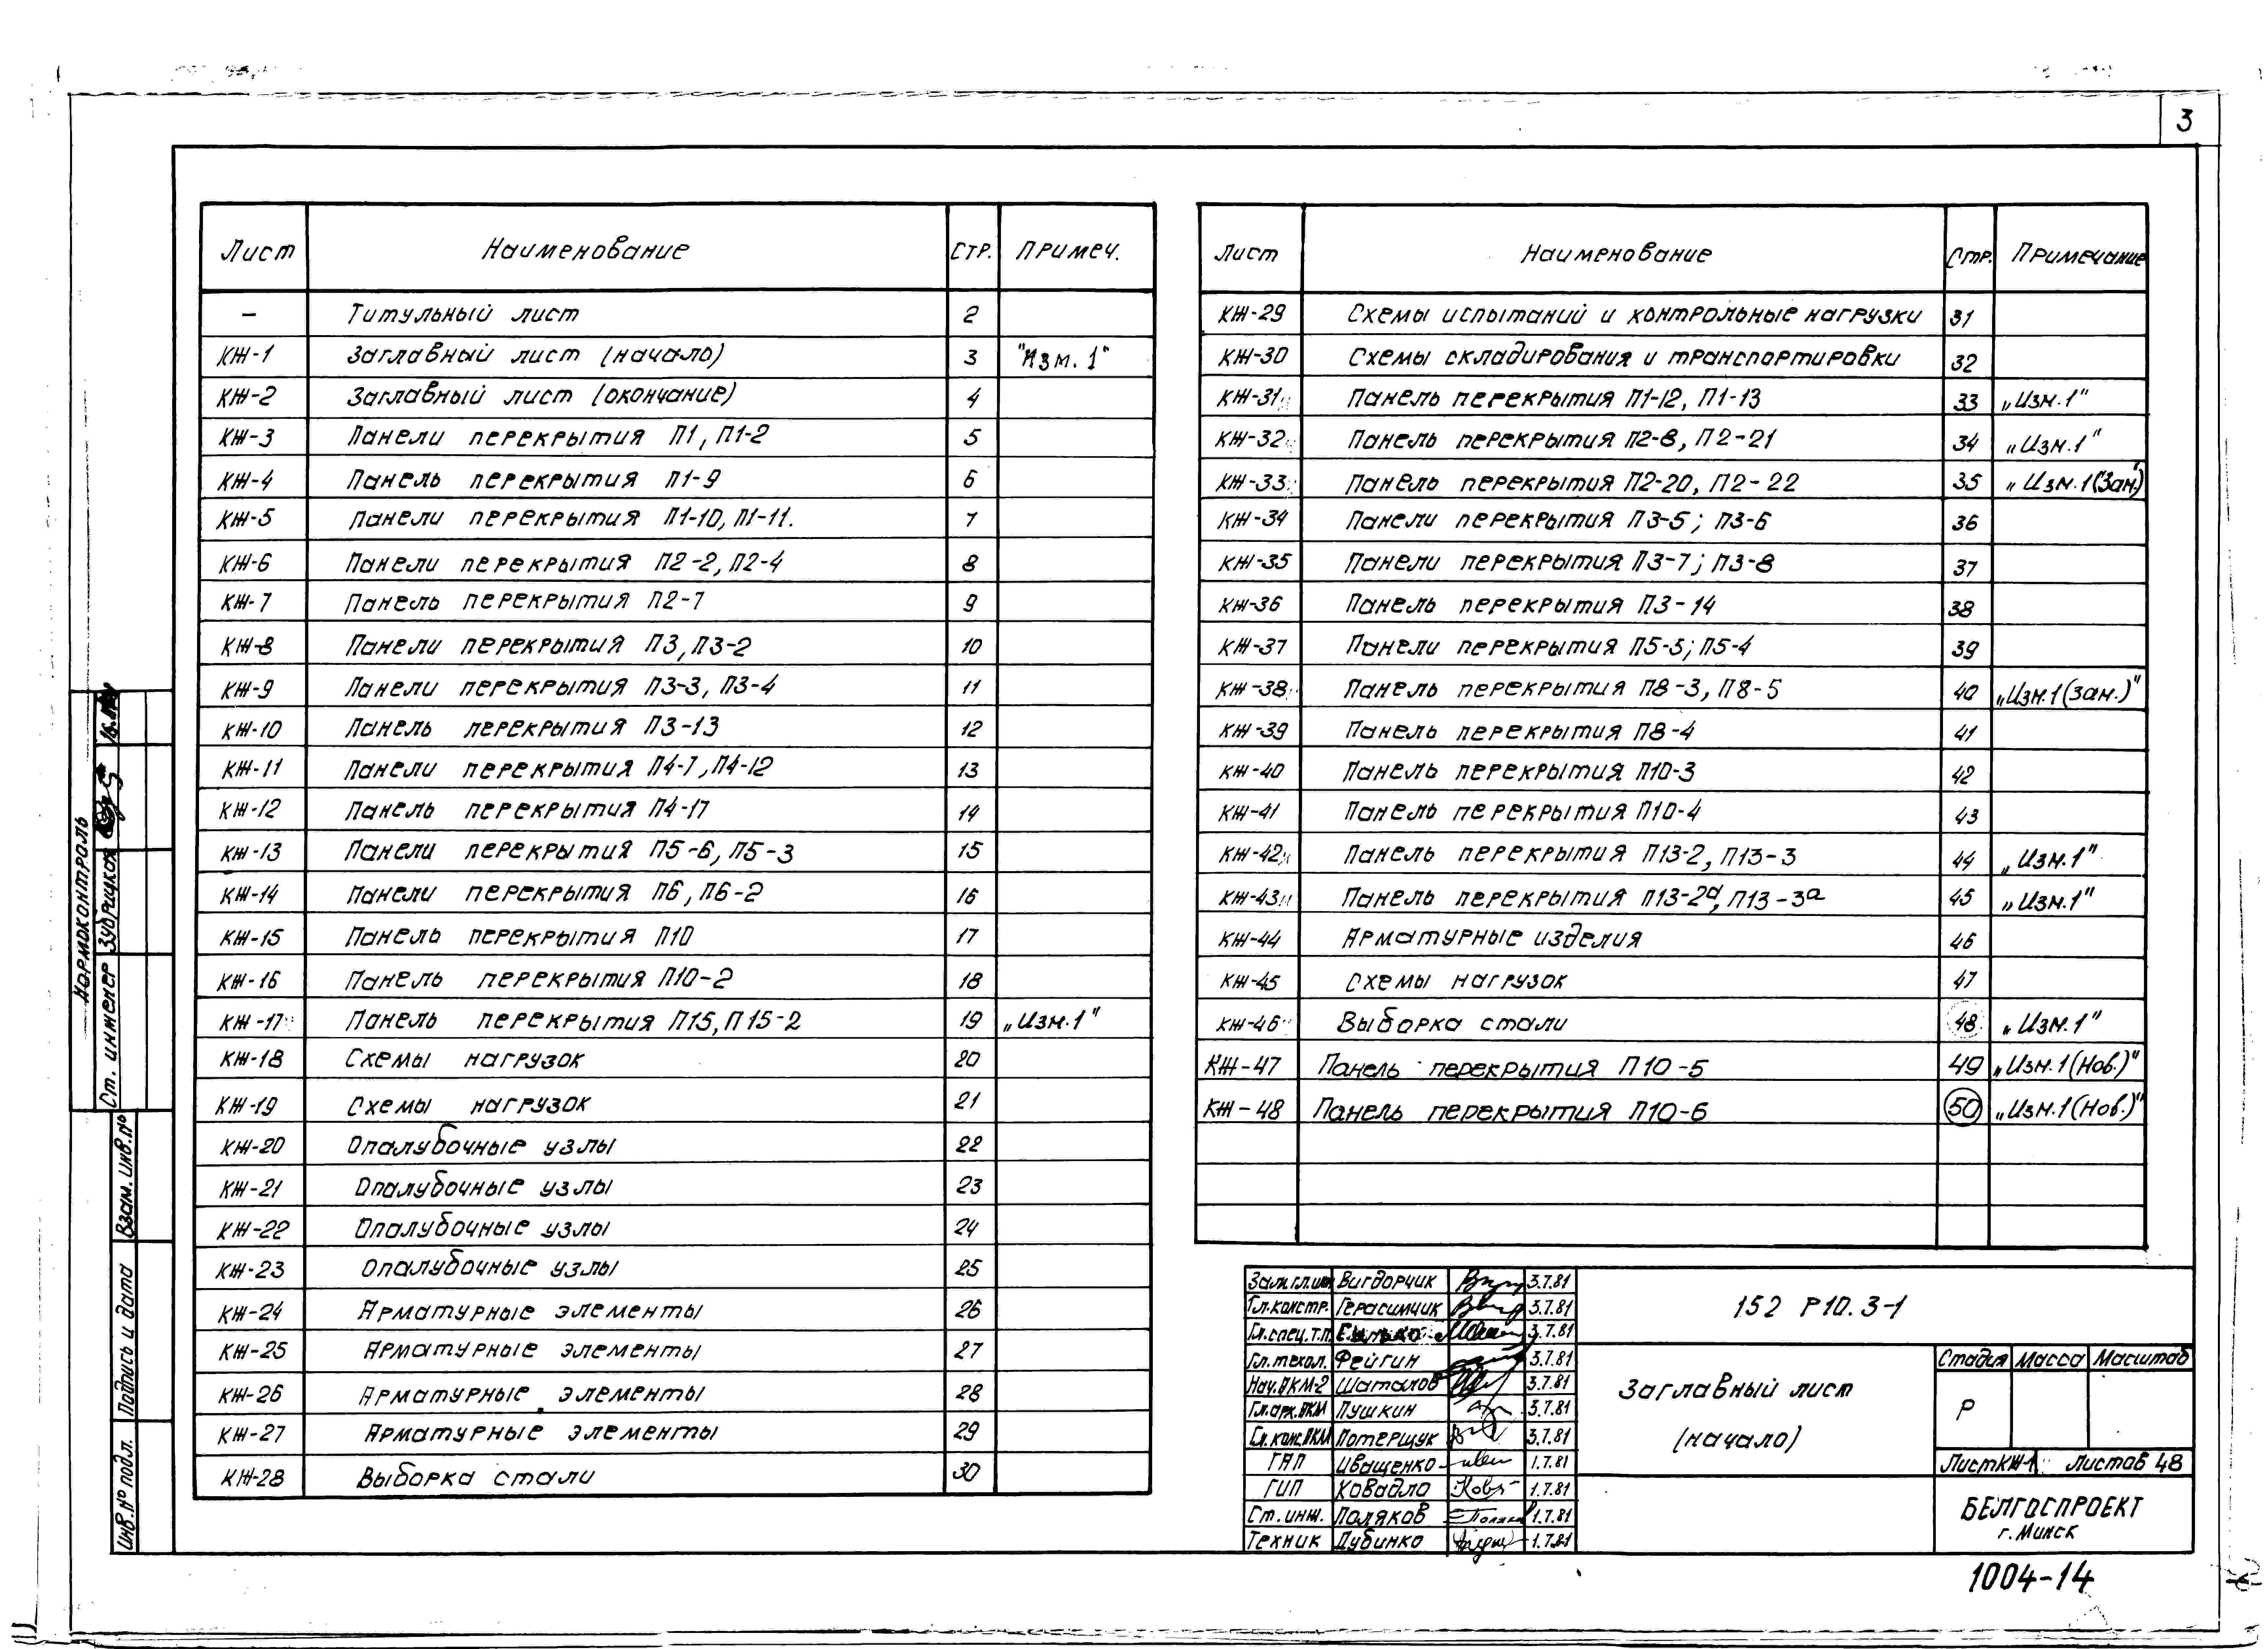 3
Лист Наименование Стр. Примеч.
– Титульный лист 2
КЖ-1 Заглавный лист (начало) 3 "Изм. 1"
КЖ-2 Заглавный лист (окончание) 4
КЖ-3 Панели перекрытия П1, П1-2 5
КЖ-4 Панель перекрытия П1-9 6
КЖ-5 Панели перекрытия П1-10, П1-11. 7
КЖ-6 Панели перекрытия П2-2, П2-4 8
КЖ-7 Панель перекрытия П2-7 9
КЖ-8 Панели перекрытия П3, П3-2 10
КЖ-9 Панели перекрытия П3-3, П3-4 11
КЖ-10 Панель перекрытия П3-13 12
КЖ-11 Панели перекрытия П4-7, П4-12 13
КЖ-12 Панель перекрытия П4-17 14
КЖ-13 Панели перекрытия П5-6, П5-3 15
КЖ-14 Панели перекрытия П6, П6-2 16
КЖ-15 Панель перекрытия П10 17
КЖ-16 Панель перекрытия П10-2 18
КЖ-17 Панель перекрытия П15, П15-2 19 „Изм.1"
КЖ-18 Схемы нагрузок 20
КЖ-19 Схемы нагрузок 21
КЖ-20 Опалубочные узлы 22
КЖ-21 Опалубочные узлы 23
КЖ-22 Опалубочные узлы 24
КЖ-23 Опалубочные узлы 25
КЖ-24 Арматурные элементы 26
КЖ-25 Арматурные элементы 27
КЖ-26 Арматурные элементы 28
КЖ-27 Арматурные элементы 29
КЖ-28 Выборка стали 30
Лист Наименование Стр. Примечание
КЖ-29 Схемы испытаний и контрольные нагрузки 31
КЖ-30 Схемы складирования и транспортировки 32
КЖ-31 Панель перекрытия П1-12, П1-13 33 „Изм.1"
КЖ-32 Панель перекрытия П2-8, П2-21 34 „Изм.1"
КЖ-33 Панель перекрытия П2-20, П2-22 35 „Изм.1(Зам)"
КЖ-34 Панели перекрытия П3-5; П3-6 36
КЖ-35 Панели перекрытия П3-7; П3-8 37
КЖ-36 Панель перекрытия П3-14 38
КЖ-37 Панели перекрытия П5-5; П5-4 39
КЖ-38 Панель перекрытия П8-3, П8-5 40 „Изм.1(зам.)"
КЖ-39 Панель перекрытия П8-4 41
КЖ-40 Панель перекрытия П10-3 42
КЖ-41 Панель перекрытия П10-4 43
КЖ-42 Панель перекрытия П13-2, П13-3 44 „Изм.1"
КЖ-43 Панель перекрытия П13-2а, П13-3а 45 „Изм.1"
КЖ-44 Арматурные изделия 46
КЖ-45 Схемы нагрузок 47
КЖ-46 Выборка стали 48 „Изм.1"
КЖ-47 Панель перекрытия П10-5 49 „Изм.1(Нов.)"
КЖ-48 Панель перекрытия П10-6 50 „Изм.1(Нов.)"
Нормоконтроль
Ст. инженер Зубрицкая
Взам. инв. №
Подпись и дата
Инв. № подл.
Зам.гл.инж Вигдорчик 3.7.81
Гл.констр. Герасимчик 3.7.81
Гл.спец.т.п. 3.7.81
Гл.технол. Фейгин 3.7.81
Нач.АКМ-2 Шаталов 3.7.81
Гл.арх.АКМ Пушкин 3.7.81
Гл.конс.АКМ Потерщук 3.7.81
ГАП Иващенко 1.7.81
ГИП Ковадло 1.7.81
Ст.инж. Поляков 1.7.81
Техник Дубинко 1.7.81
152 Р10.3-1
Заглавный лист
(начало)
Стадия Масса Масштаб
Р
Лист КЖ-1 Листов 48
БЕЛГОСПРОЕКТ
г. Минск
1004-14